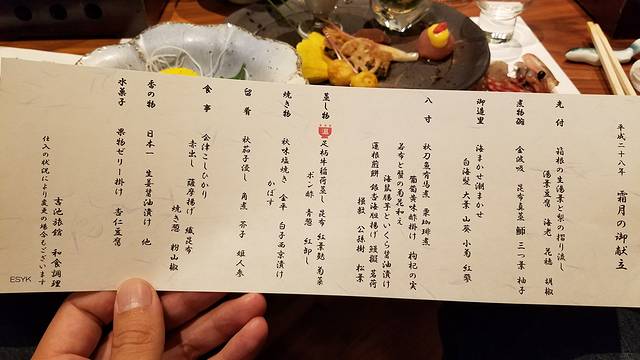 平成二十八年 霜月の御献立
先付 箱根の生湯葉と梨の摺り流し
湯葉豆腐 海老 花穂 胡椒
煮物碗 金波吸 昆布真蒸 鰤 三つ葉 柚子
御造里 海まかせ潮まかせ
白海髪 大葉 山葵 小菊 紅蓼
八寸 秋刀魚有馬煮 栗珈琲煮
葡萄黄味酢掛け 枸杞の実
若布と蟹の菊花和え
海鼠腸芋といくら醤油漬け
蓮根煎餅 銀杏海胆揚げ 鰻擬 茗荷
模擬 公孫樹 松葉
蒸し物 足柄牛稲荷蒸し 昆布 紅葉麩 菊菜
ポン酢 青葱 紅卸し
焼き物 秋味塩焼き 金平 白子西京漬け
かぼす
留肴 秋茄子優し 角煮 芥子 姫人参
食事 会津こしひかり
赤出し 薩摩揚げ 織昆布
焼き葱 粉山椒
香の物 日本一 生姜醤油漬け 他
水菓子 果物ゼリー掛け 杏仁豆腐
吉池旅館 和食調理
仕入の状況により変更の場合もございます
ESYK